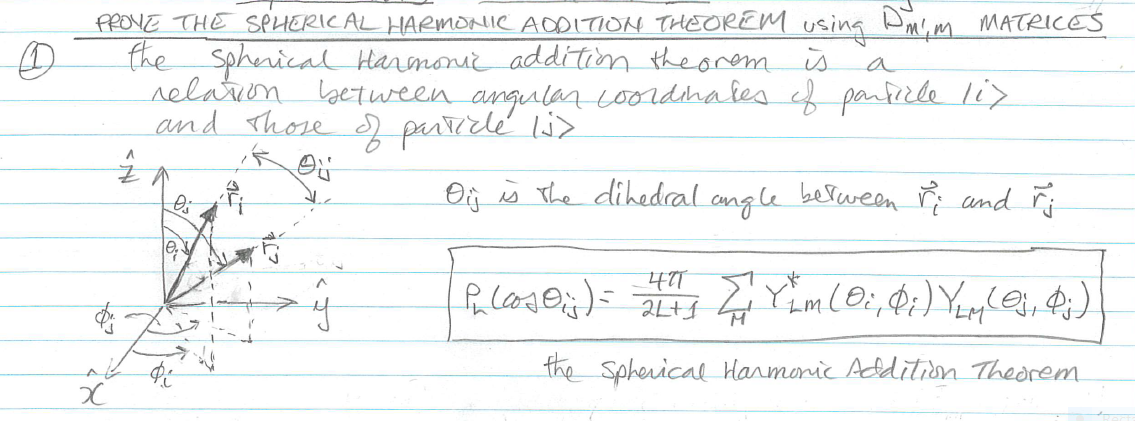 PROVE THE SPHERICAL HARMONIC ADDITION THEOREM using D^J_{m',m} MATRICES
① the spherical Harmonic addition theorem is a
relation between angular coordinates of particle |i>
and those of particle |j>
ẑ θ_ij
θ_j r⃗_i
θ_ij is the dihedral angle between r⃗_i and r⃗_j
θ_i r⃗_j
P_L(cosθ_ij) = 4π/(2L+1) Σ_M Y*_LM(θ_i, φ_i) Y_LM(θ_j, φ_j)
ŷ
φ_j
φ_i
x̂
the Spherical Harmonic Addition Theorem